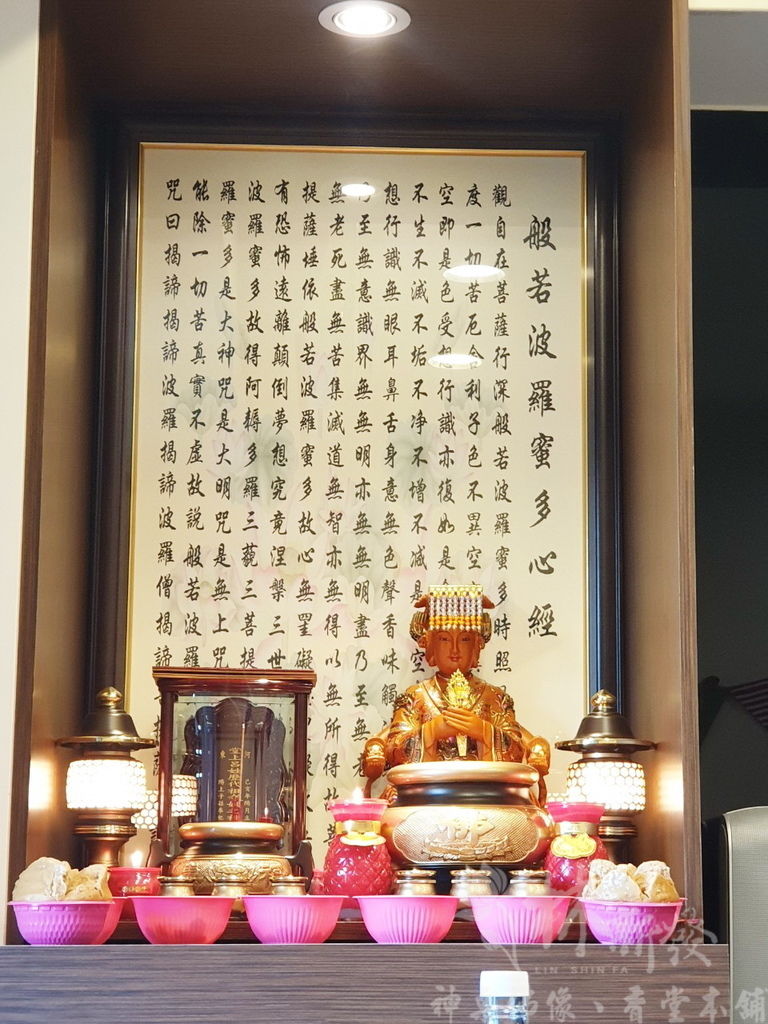 般若波羅蜜多心經
觀自在菩薩行深般若波羅蜜多時照
度一切苦厄舍利子色不異空
空即是色受想行識亦復如是
不生不滅不垢不净不增不减是 空
想行識無眼耳鼻舌身意無色聲香味觸
乃至無意識界無無明亦無無明盡乃至無老
無老死盡無苦集滅道無智亦無得以無所得故
提薩埵依般若波羅蜜多故心無罣礙
有恐怖遠離顛倒夢想究竟涅槃三世
波羅蜜多故得阿耨多羅三藐三菩提
羅蜜多是大神咒是大明咒是無上咒
能除一切苦真實不虛故說般若波羅
咒曰揭諦揭諦波羅揭諦波羅僧揭諦
河東
堂上呂姓歷代
LIN SHIN FA
神桌佛像、香堂本舖